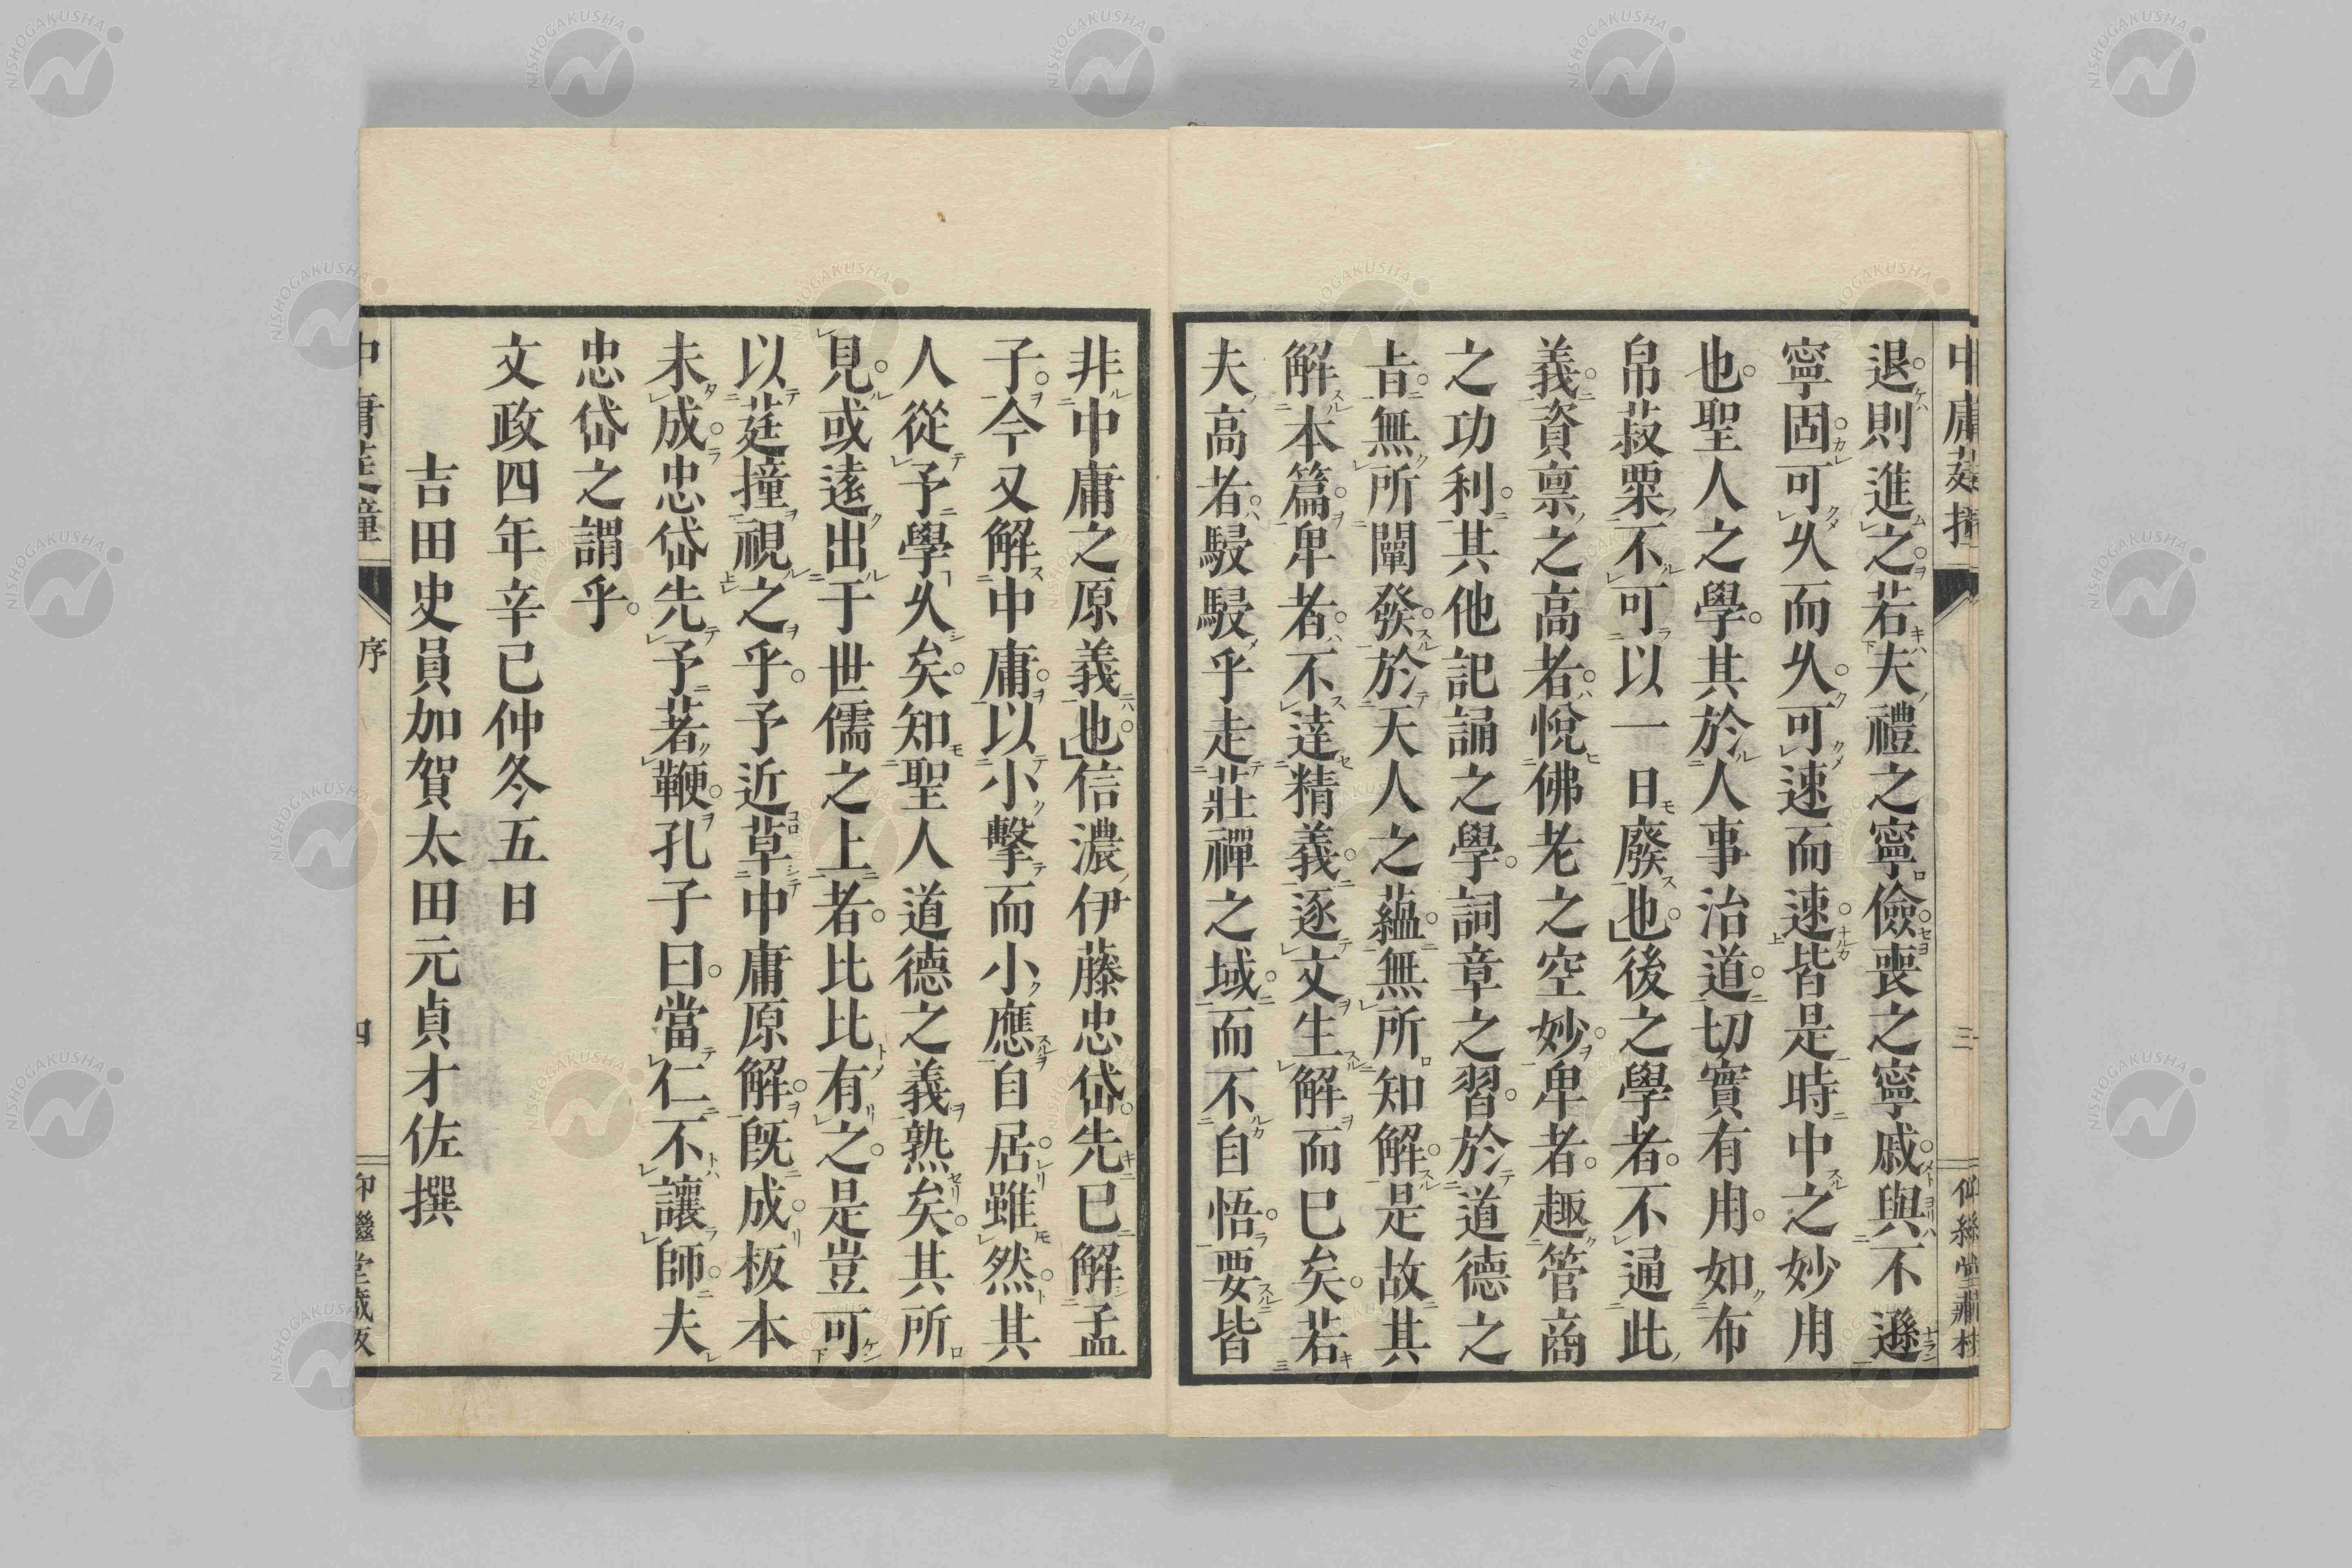 中庸莛撞
三
退則進之若夫禮之寧儉喪之寧戚與不遜
寧固可久而久可速而速皆是時中之妙用
也聖人之學其於人事治道切實有用如布
帛菽粟不可以一日廢也後之學者不通此
義資禀之高者悅佛老之空妙卑者趣管商
之功利其他記誦之學詞章之習於道德之
㫖無所闡發於天人之蘊無所知解是故其
解本篇卑者不達精義逐文生解而已矣若
夫高者駸駸乎走莊禪之域而不自悟要皆
非中庸之原義也信濃伊藤忠岱先已解孟
子今又解中庸以小擊而小應自居雖然其
人從予學久矣知聖人道德之義熟矣其所
見或遠出于世儒之上者比比有之是豈可
以莛撞視之乎予近草中庸原解既成板本
未成忠岱先予著鞭孔子曰當仁不讓師夫
忠岱之謂乎
文政四年辛巳仲冬五日
吉田史員加賀太田元貞才佐撰
中庸莛撞
序
四
NISHOGAKUSHA